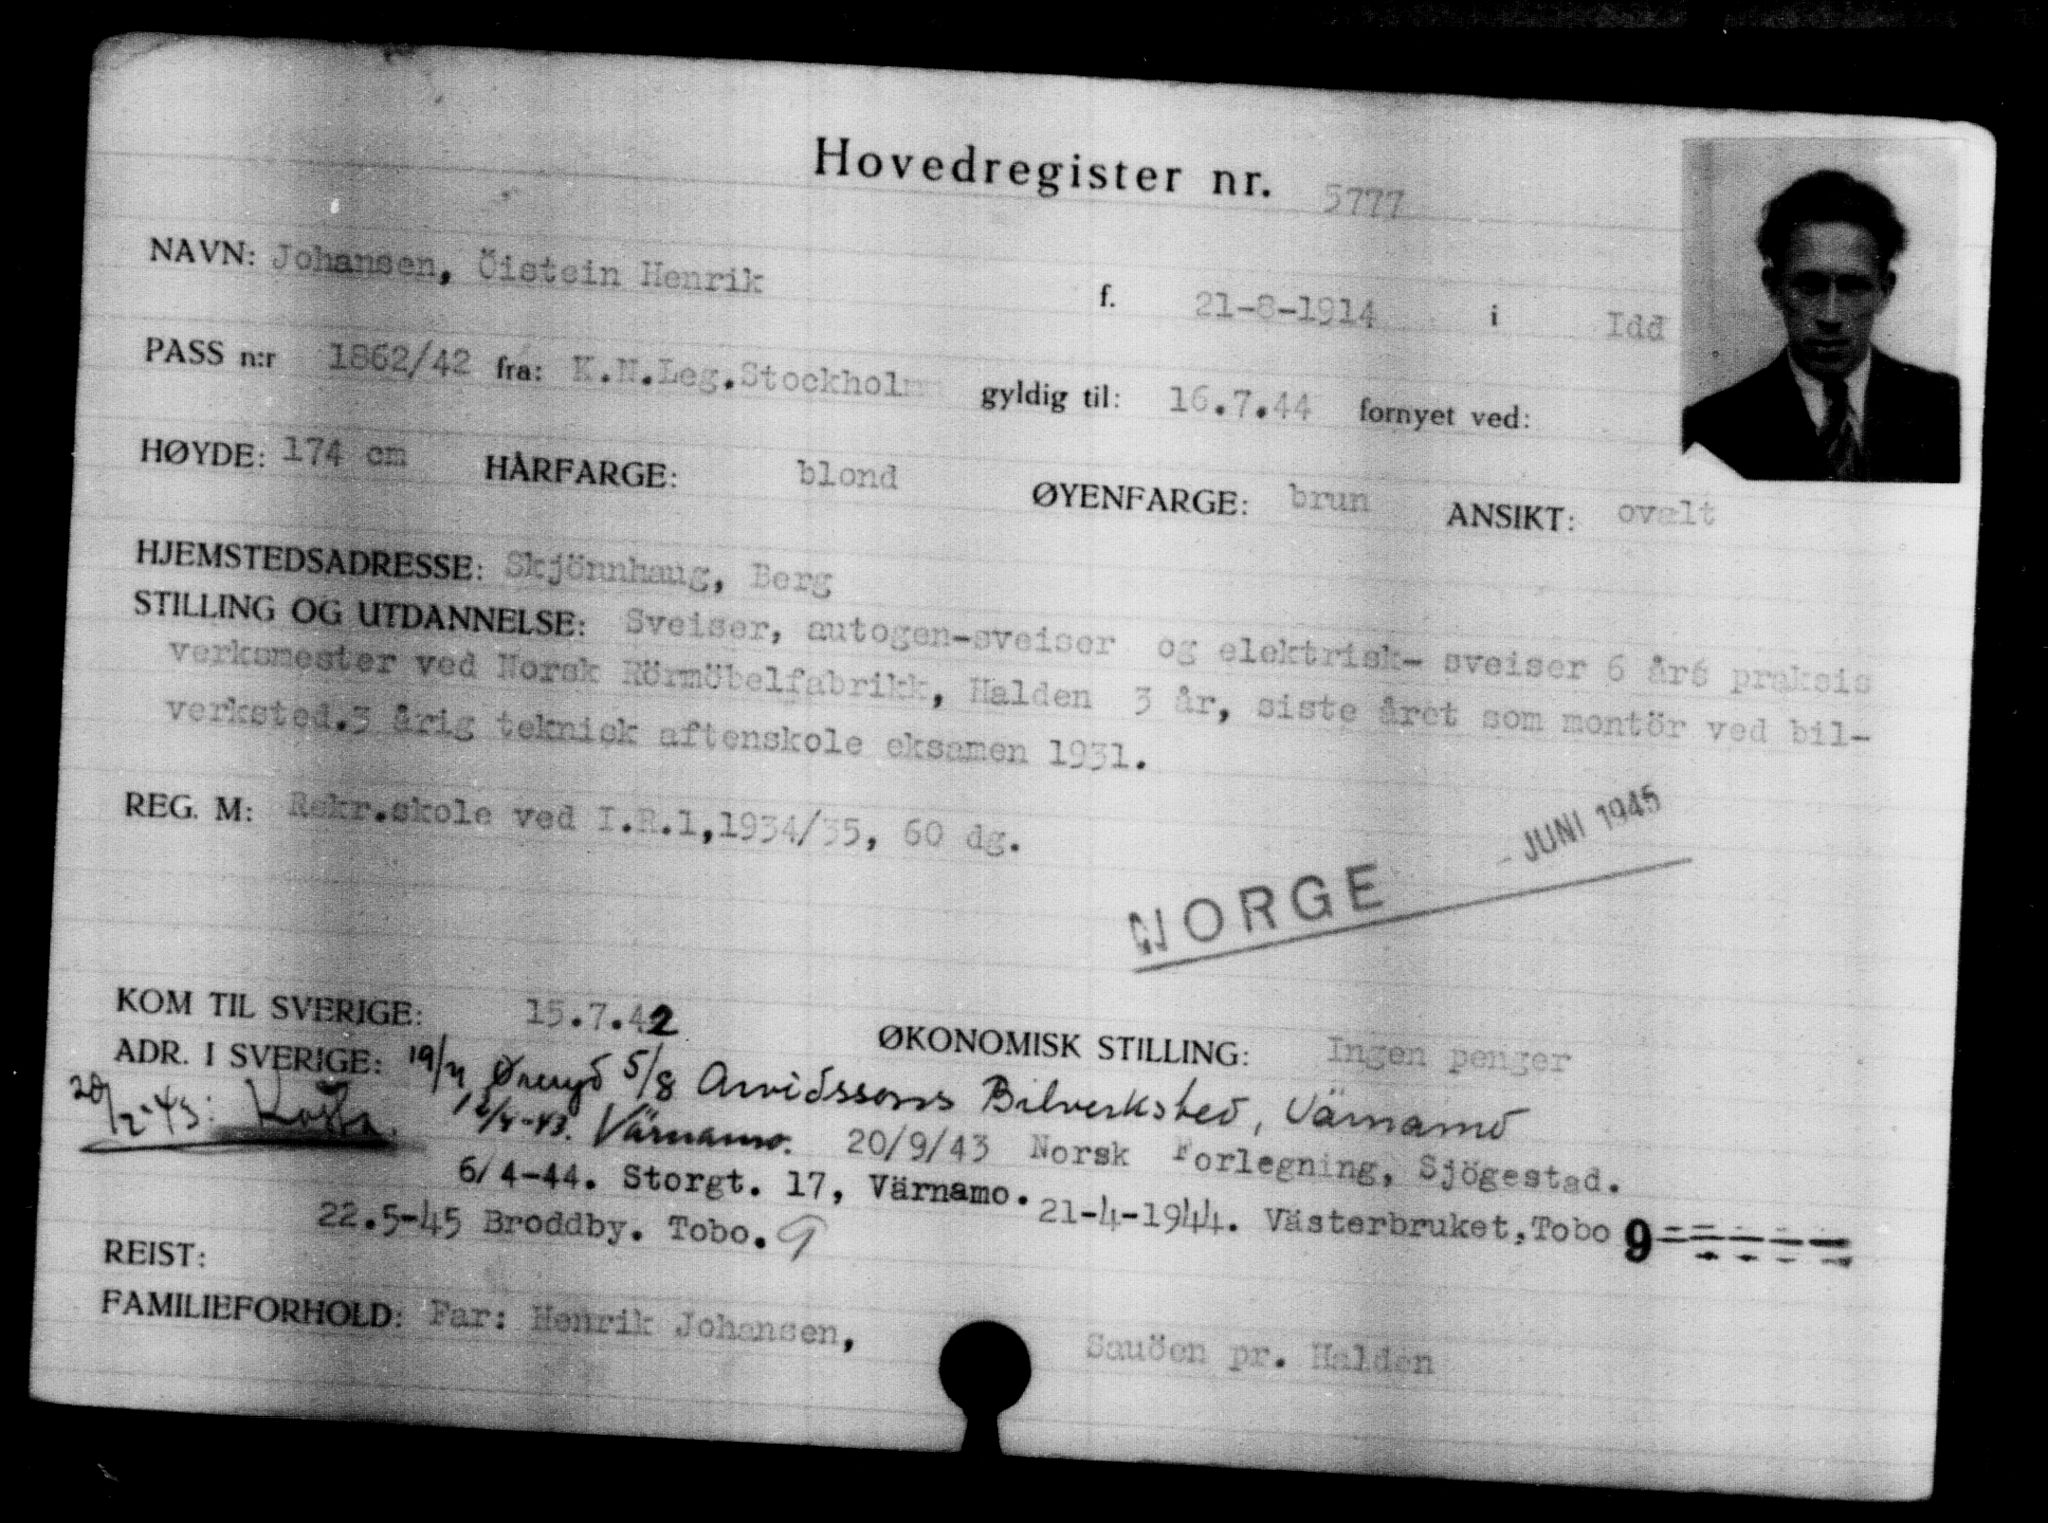 Hovedregister nr. 5777
NAVN: Johansen, Öistein Henrik f. 21-8-1914 i Idd
PASS n:r 1862/42 fra: K.N.Leg.Stockholm gyldig til: 16.7.44 fornyet ved:
HØYDE: 174 cm HÅRFARGE: blond ØYENFARGE: brun ANSIKT: ovalt
HJEMSTEDSADRESSE: Skjönnhaug, Berg
STILLING OG UTDANNELSE: Sveiser, autogen-sveiser og elektrisk- sveiser 6 års praksis
verksmester ved Norsk Rörmöbelfabrikk, Halden 3 år, siste året som montör ved bil-
verksted.3 årig teknisk aftenskole eksamen 1931.
REG. M: Rekr.skole ved I.R.1,1934/35, 60 dg.
NORGE - JUNI 1945
KOM TIL SVERIGE: 15.7.42 ØKONOMISK STILLING: Ingen penger
ADR. I SVERIGE: 19/7 Øreryd 5/8 Arvidssons Bilverksted, Värnamo
20/2-43: Kosta. Värnamo. 20/9/43 Norsk Forlegning, Sjögestad.
6/4-44. Storgt. 17, Värnamo. 21-4-1944. Västerbruket, Tobo 9
22.5-45 Broddby. Tobo. 9
REIST:
FAMILIEFORHOLD: Far: Henrik Johansen, Sauöen pr. Halden